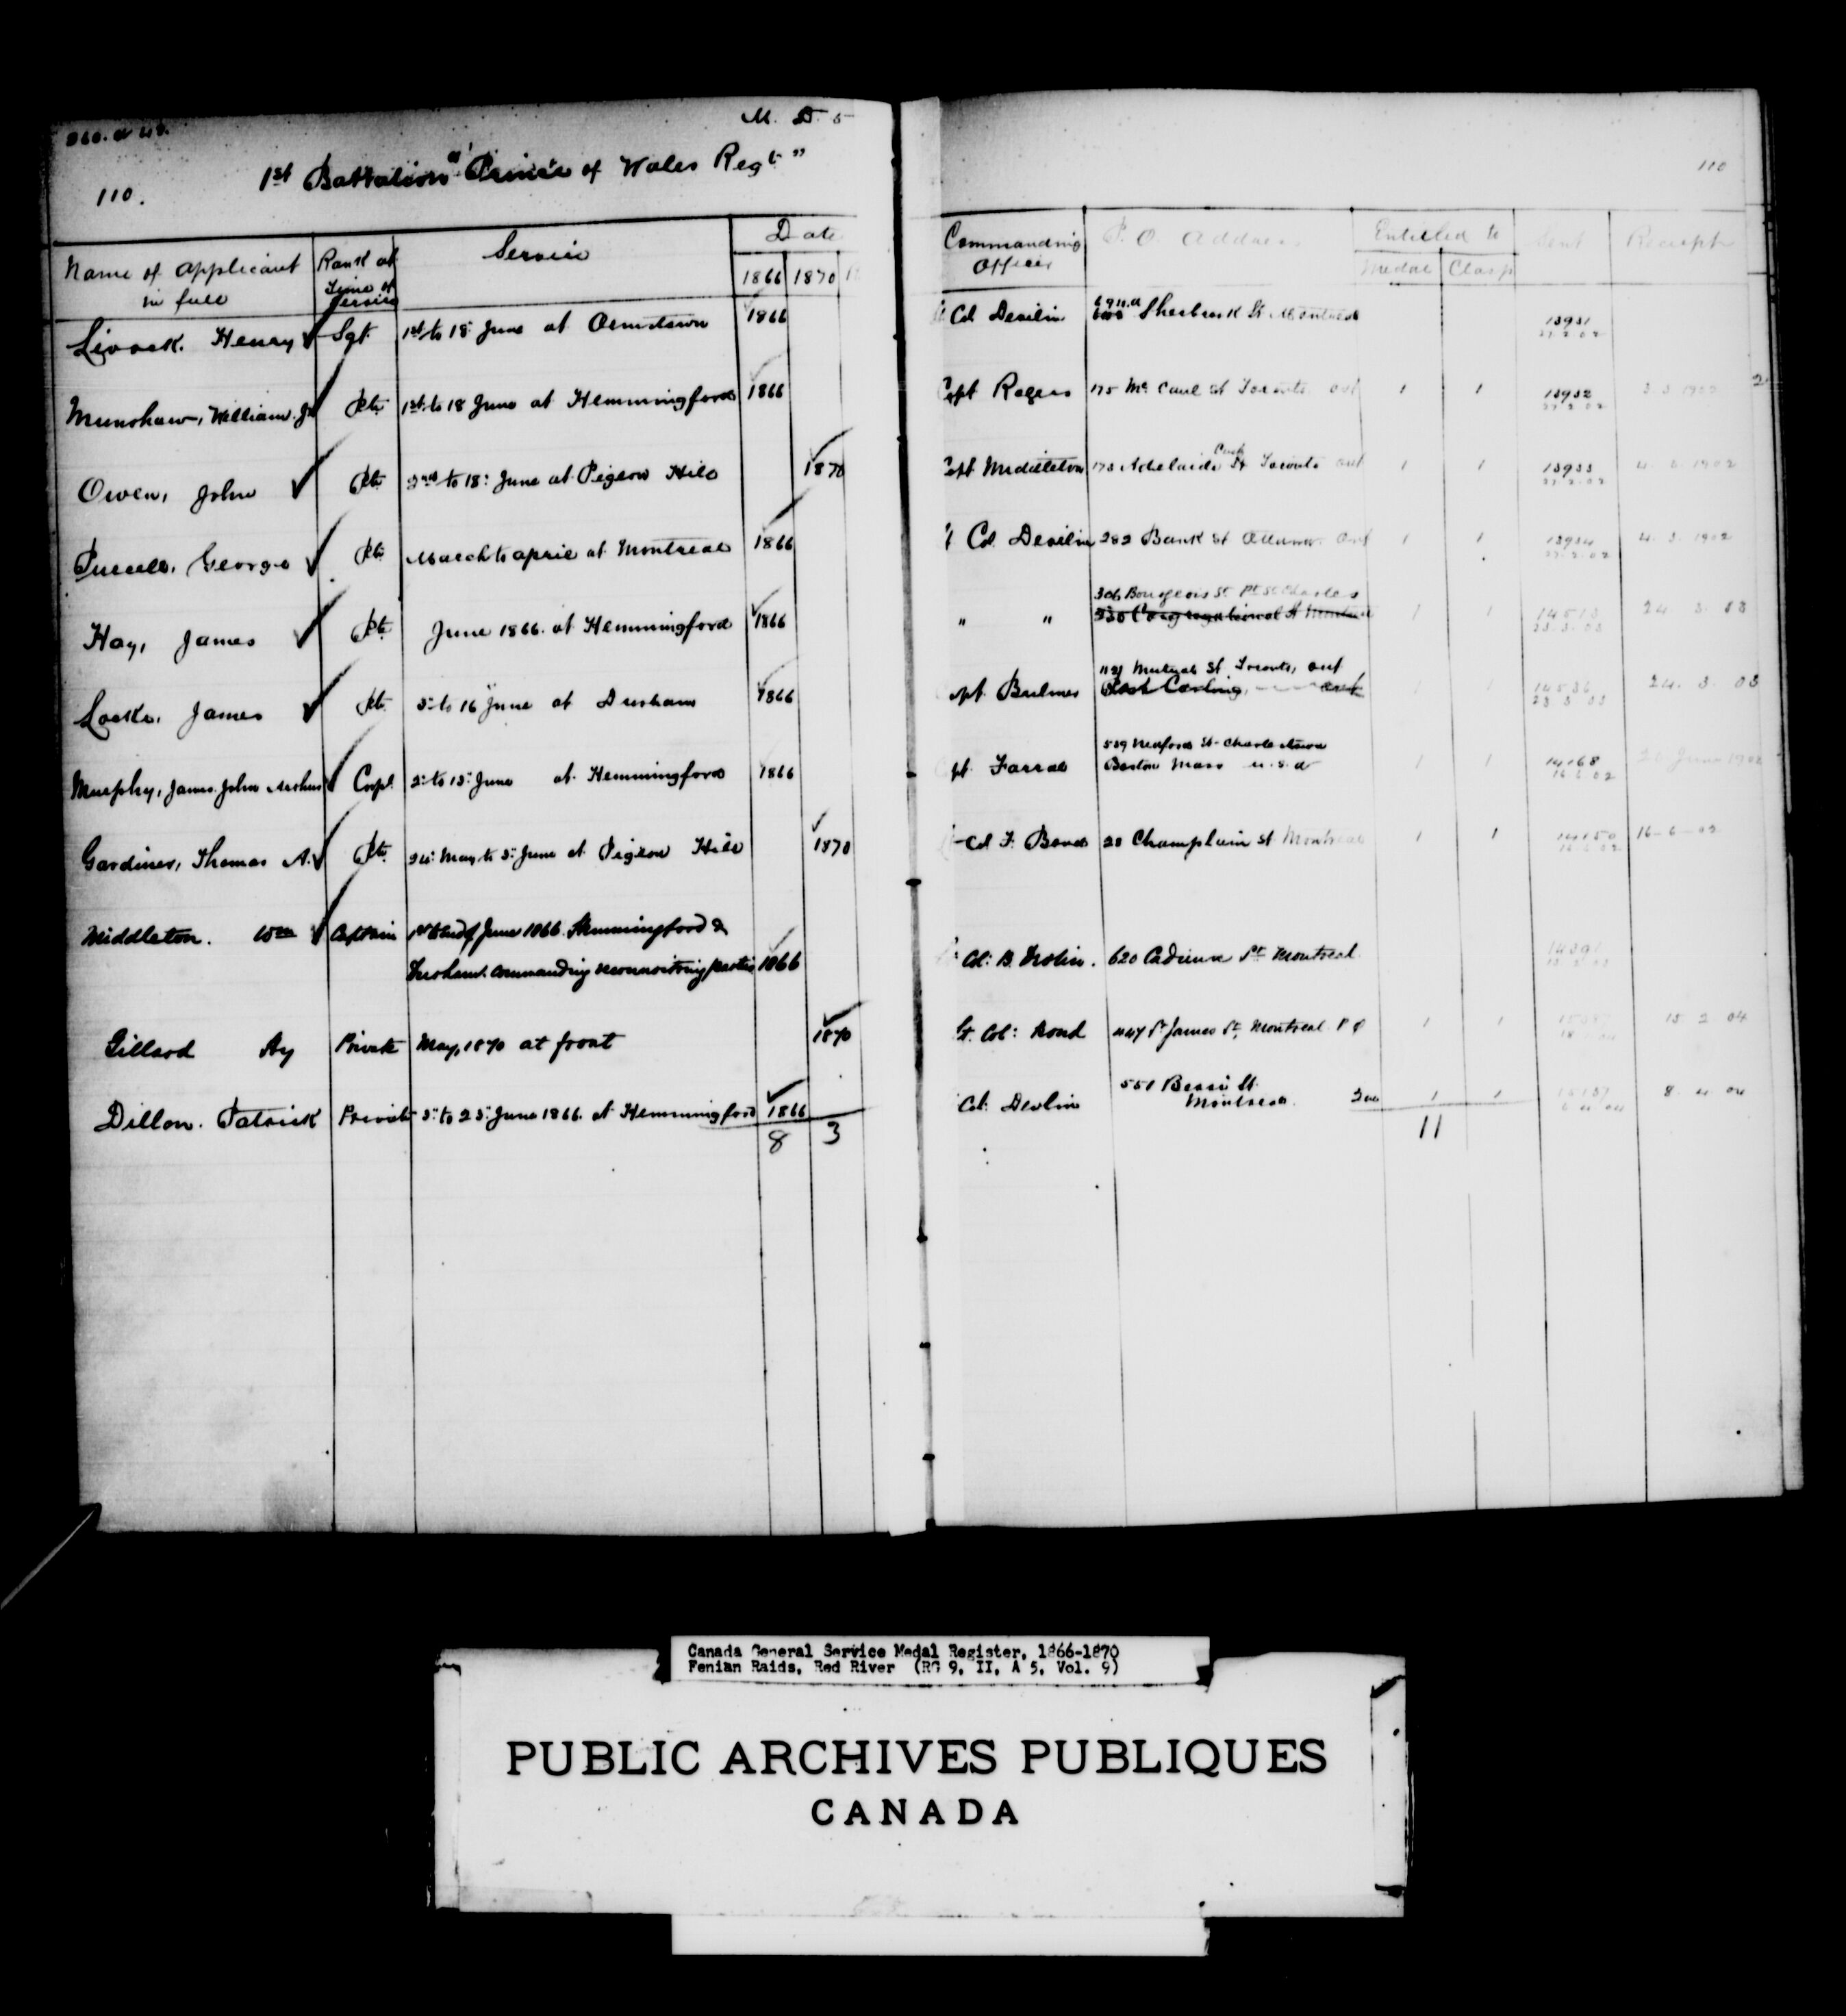 M. D. 5
110.
1st Battalion "Prince of Wales Regt"
110
Name of applicant in full
Rank at Time of Service
Service
Date
1866 1870
Commanding Officer
P. O. Address
Entitled to
Medal Clasp
Sent
Receipt
Livock. Henry Sgt. 1st to 18 June at Ormstown 1866 Col Devlin Sherbrook St Montreal 13931
27.2.02
Munshaw, William. Jr Pte. 1st to 18 June at Hemmingford 1866 Capt Rogers 175 Mc Caul St Toronto Ont 1 1 13932 3 3 1902
27.2.02
Owen, John Pte. 2nd to 18: June at Pigeon Hill 1870 Capt Middleton 173 Adelaide St Toronto Ont 1 1 13933 4 3 1902
27.2.02
Purcell, George Pte. March to april at Montreal 1866 Col Devlin 282 Bank St Ottawa Ont 1 1 13934 4. 3. 1902
27.2.02
306 Bourgeois St Pt St Charles
Hay, James Pte. June 1866. at Hemmingford 1866 " " 330 Congregational St Montreal 1 1 14513 24. 3. 03
23.3.03
Mutual St. Toronto, Ont
Locke, James Pte. to 16 June at Durham 1866 Capt. Bulmer Port Carling, Ont 1 1 14536 24. 3. 03
23.3.03
Medford St Charlestown
Murphy, James John Corpl. 2: to 15: June at Hemmingford 1866 Capt. Farrel Boston Mass U.S.A 1 1 14168 20 June 1902
16.6.02
Gardiner, Thomas A. Pte. 24: May to 3: June at Pigeon Hill 1870 Col F. Bond 20 Champlain St Montreal 1 1 14150 16-6-02
Middleton. Wm Captain 1st to end of June 1866. Hemmingford &
Durham. Commanding reconnoitring parties 1866 Col: B. Devlin. 620 Cadieux St Montreal
Gillard Hy Private May, 1870 at front 1870 Lt. Col: Bond 447 St James St, Montreal P Q 1 1 15 2 04
551 Berri St.
Dillon. Patrick Private 3: to 23: June 1866. at Hemmingford 1866 Col. Devlin Montreal. 1 1 8. 4 04
8 3 11
Canada General Service Medal Register, 1866-1870
Fenian Raids, Red River (RG 9, II, A 5, Vol. 9)
PUBLIC ARCHIVES PUBLIQUES
CANADA